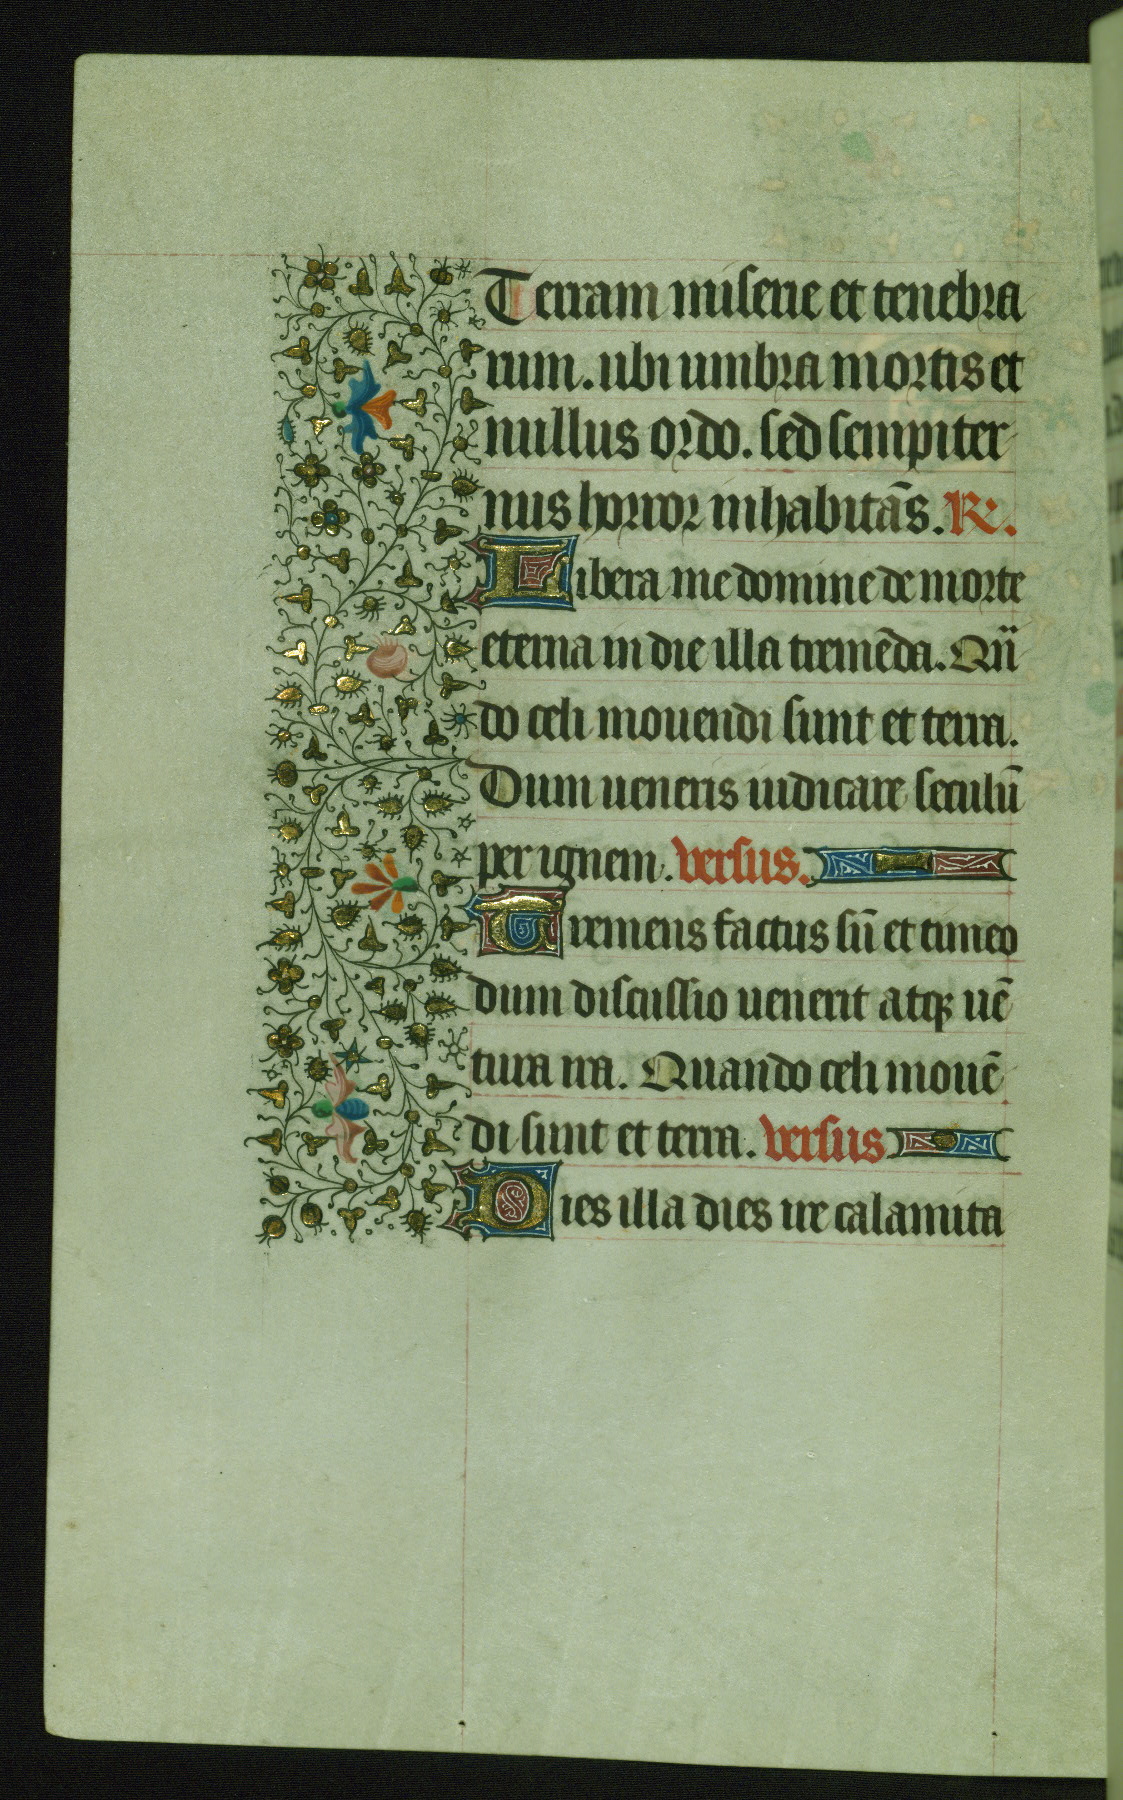 Terram miserie et tenebra
rum. ubi umbra mortis et
nullus ordo. sed sempiter
nus horror inhabitãs. R.
Libera me domine de morte
eterna in die illa tremẽda. Qñ
do celi mouendi sunt et terra.
Dum ueneris iudicare seculũ
per ignem. versus.
Tremens factus sũ et timeo
dum discussio uenerit atqꝫ uẽ
tura ira. Quando celi mouẽ
di sunt et terra. versus
Dies illa dies ire calamita